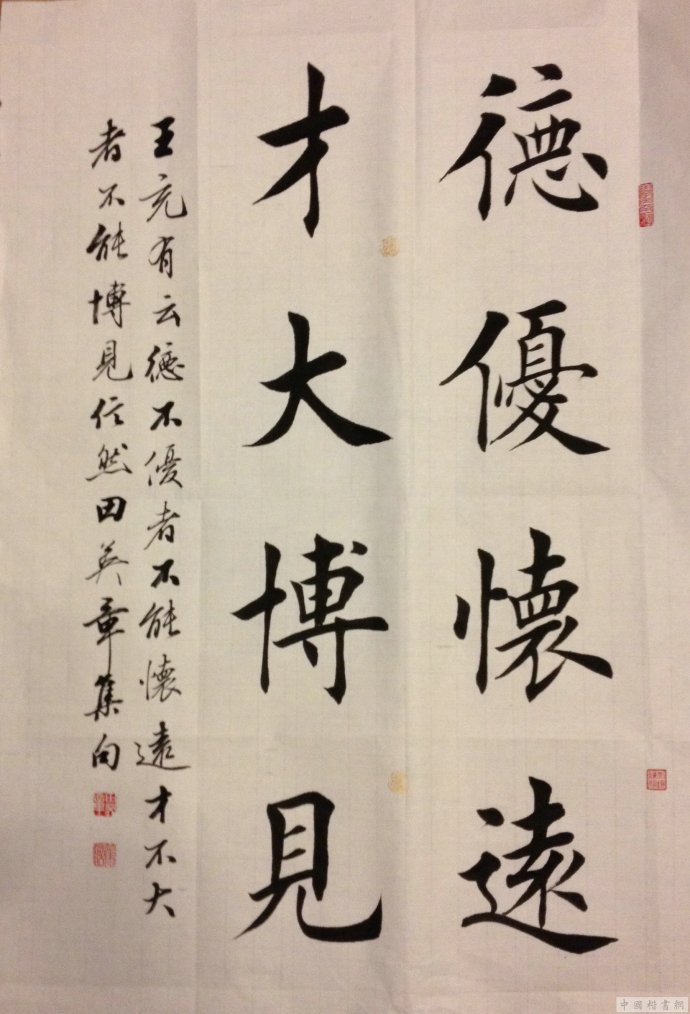 德優懷遠
才大博見
王充有云德不優者不能懷遠才不大
者不能博見信然田英章集句
中國楷書網